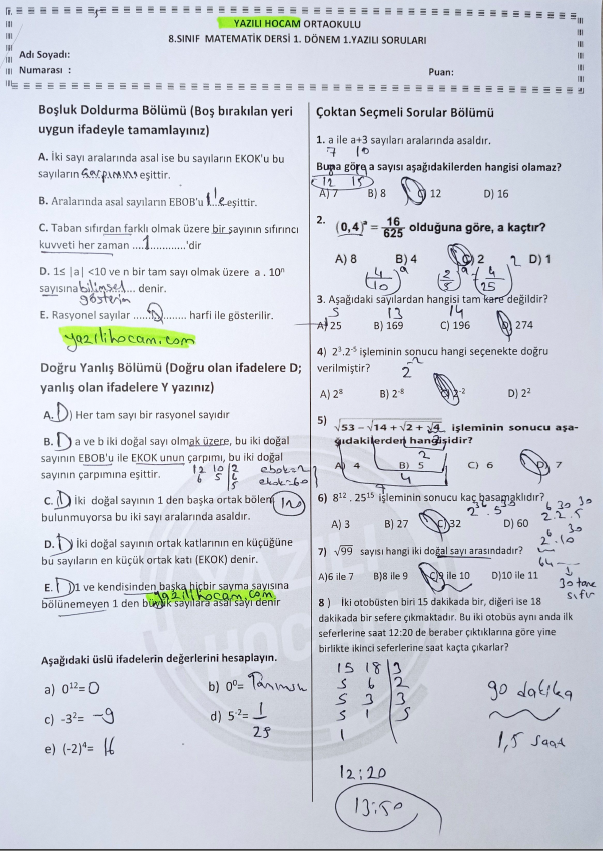 YAZILI HOCAM ORTAOKULU
8.SINIF MATEMATİK DERSİ 1. DÖNEM 1.YAZILI SORULARI
Adı Soyadı:
Numarası :
Puan:
Boşluk Doldurma Bölümü (Boş bırakılan yeri
uygun ifadeyle tamamlayınız)
A. İki sayı aralarında asal ise bu sayıların EKOK'u bu
sayıların çarpımına eşittir.
B. Aralarında asal sayıların EBOB'u 1'e eşittir.
C. Taban sıfırdan farklı olmak üzere bir sayının sıfırıncı
kuvveti her zaman ....1............'dir
D. 1≤ |a| <10 ve n bir tam sayı olmak üzere a . 10ⁿ
sayısına bilimsel... denir.
gösterim
E. Rasyonel sayılar ......Q........ harfi ile gösterilir.
yazilihocam.com
Doğru Yanlış Bölümü (Doğru olan ifadelere D;
yanlış olan ifadelere Y yazınız)
A.(D) Her tam sayı bir rasyonel sayıdır
B.(D) a ve b iki doğal sayı olmak üzere, bu iki doğal
sayının EBOB'u ile EKOK unun çarpımı, bu iki doğal
sayının çarpımına eşittir.
12 10 | 2
6 5
ebob=2
ekok=60
120
C.(D) İki doğal sayının 1 den başka ortak böleni
bulunmuyorsa bu iki sayı aralarında asaldır.
D.(D) İki doğal sayının ortak katlarının en küçüğüne
bu sayıların en küçük ortak katı (EKOK) denir.
E.(D) 1 ve kendisinden başka hiçbir sayma sayısına
bölünemeyen 1 den büyük sayılara asal sayı denir
yazilihocam.com
Aşağıdaki üslü ifadelerin değerlerini hesaplayın.
a) 0¹²=0
b) 0⁰= Tanımsız
c) -3²= -9
d) 5⁻²= 1
25
e) (-2)⁴= 16
Çoktan Seçmeli Sorular Bölümü
1. a ile a+3 sayıları aralarında asaldır.
7 10
Buna göre a sayısı aşağıdakilerden hangisi olamaz?
12 15
A) 7 B) 8 C) 12 D) 16
2. (0,4)ᵃ = 16/625 olduğuna göre, a kaçtır?
A) 8 B) 4 C) 2 D) 1
(4/10)ᵃ (2/5)ᵃ = 4/25
3. Aşağıdaki sayılardan hangisi tam kare değildir?
5 13 14
A) 25 B) 169 C) 196 D) 274
4) 2³.2⁻⁵ işleminin sonucu hangi seçenekte doğru
verilmiştir?
2⁻²
A) 2⁸ B) 2⁻⁸ C) 2⁻² D) 2²
5) √53 − √14 + √2 + √4 işleminin sonucu aşa-
ğıdakilerden hangisidir?
2
A) 4 B) 5 C) 6 D) 7
6) 8¹² . 25¹⁵ işleminin sonucu kaç basamaklıdır?
2³⁶ . 5³⁰
A) 3 B) 27 C) 32 D) 60
2⁶.2³⁰.5³⁰
2⁶.10³⁰
7) √99 sayısı hangi iki doğal sayı arasındadır?
64
A)6 ile 7 B)8 ile 9 C)9 ile 10 D)10 ile 11
30 tane
sıfır
8 ) İki otobüsten biri 15 dakikada bir, diğeri ise 18
dakikada bir sefere çıkmaktadır. Bu iki otobüs aynı anda ilk
seferlerine saat 12:20 de beraber çıktıklarına göre yine
birlikte ikinci seferlerine saat kaçta çıkarlar?
15 18 | 3
5 6 | 2
5 3 | 3
5 1 | 5
1
90 dakika
1,5 saat
12:20
13:50